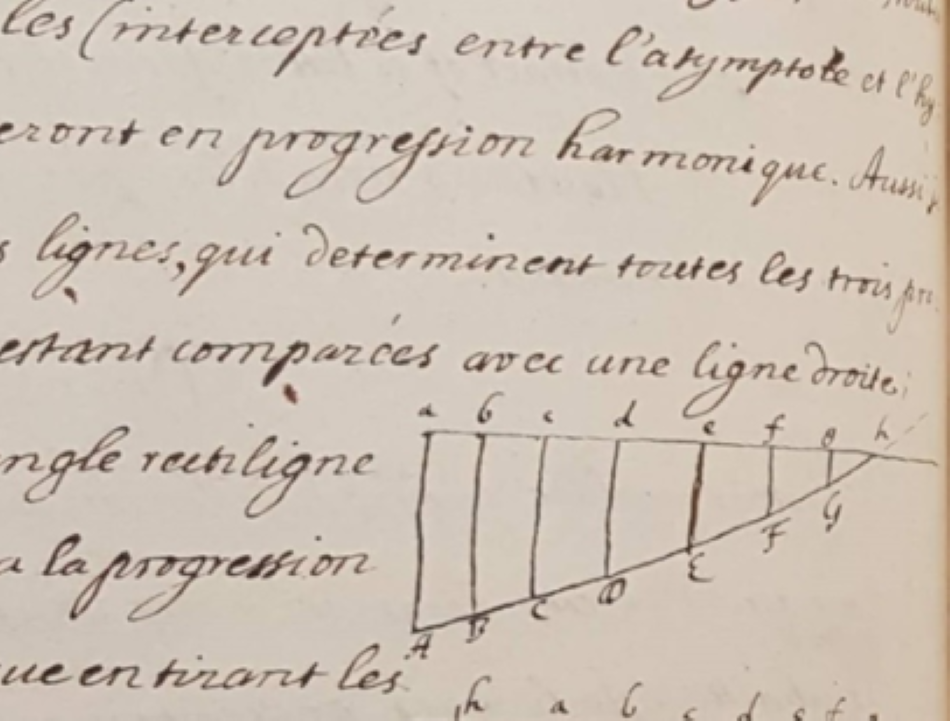 les (interceptées entre l'asymptote et l'hy
eront en progression harmonique. Aussi
s lignes, qui determinent toutes les trois
estant comparées avec une ligne droite;
a b c d e f g h
ngle rectiligne
A B C D E F G
a la progression
ue en tirant les
h a b c d e f